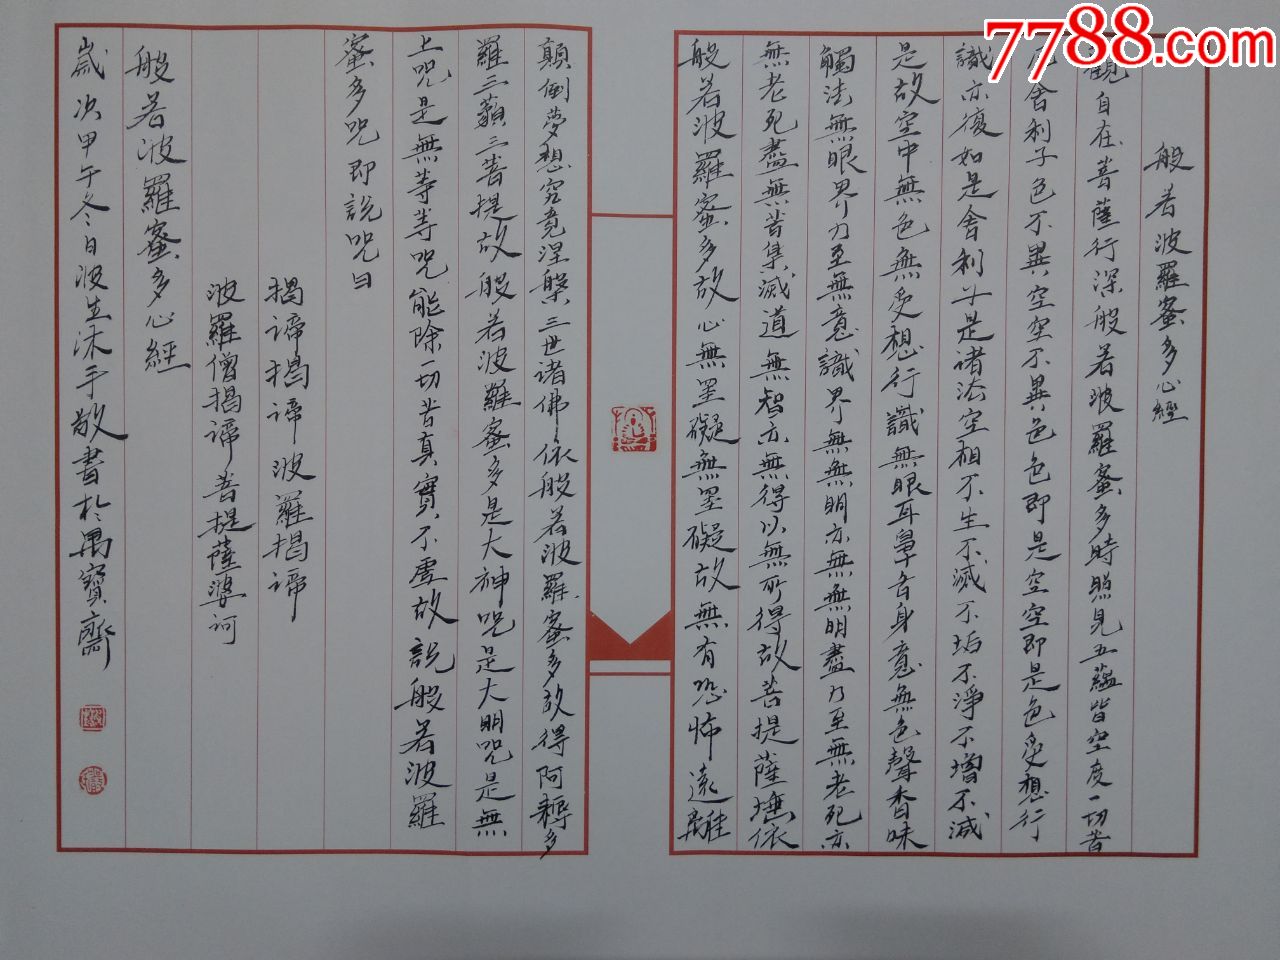 7788.com
般若波羅蜜多心經
觀自在菩薩行深般若波羅蜜多時照見五蘊皆空度一切苦
厄舍利子色不異空空不異色色即是空空即是色受想行
識亦復如是舍利子是諸法空相不生不滅不垢不淨不增不減
是故空中無色無受想行識無眼耳鼻舌身意無色聲香味
觸法無眼界乃至無意識界無無明亦無無明盡乃至無老死亦
無老死盡無苦集滅道無智亦無得以無所得故菩提薩埵依
般若波羅蜜多故心無罣礙無罣礙故無有恐怖遠離
顛倒夢想究竟涅槃三世諸佛依般若波羅蜜多故得阿耨多
羅三藐三菩提故般若波羅蜜多是大神咒是大明咒是無
上咒是無等等咒能除一切苦真實不虛故說般若波羅
蜜多咒即說咒曰
揭諦揭諦波羅揭諦
波羅僧揭諦菩提薩婆訶
般若波羅蜜多心經
歲次甲午冬日波生沐手敬書於禺寶齋